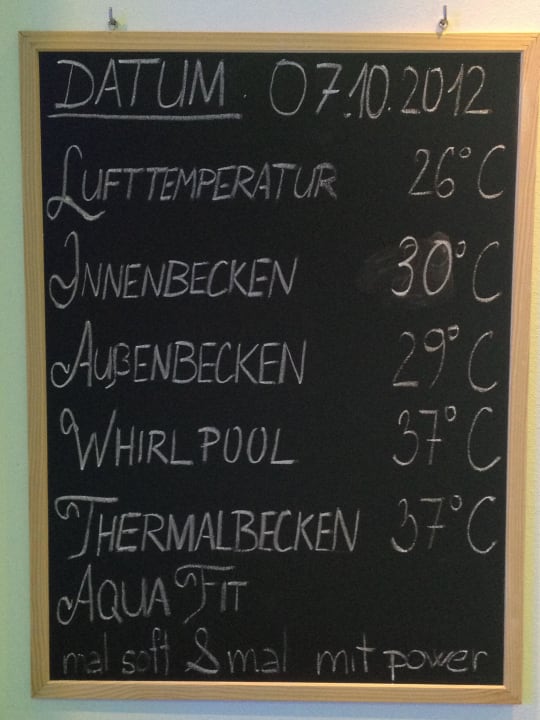 DATUM. 07.10.2012
LUFTTEMPERATUR 26°C
INNENBECKEN 30°C
AUßENBECKEN 29°C
WHIRLPOOL 37°C
THERMALBECKEN 37°C
AQUA FIT
mal soft & mal mit power